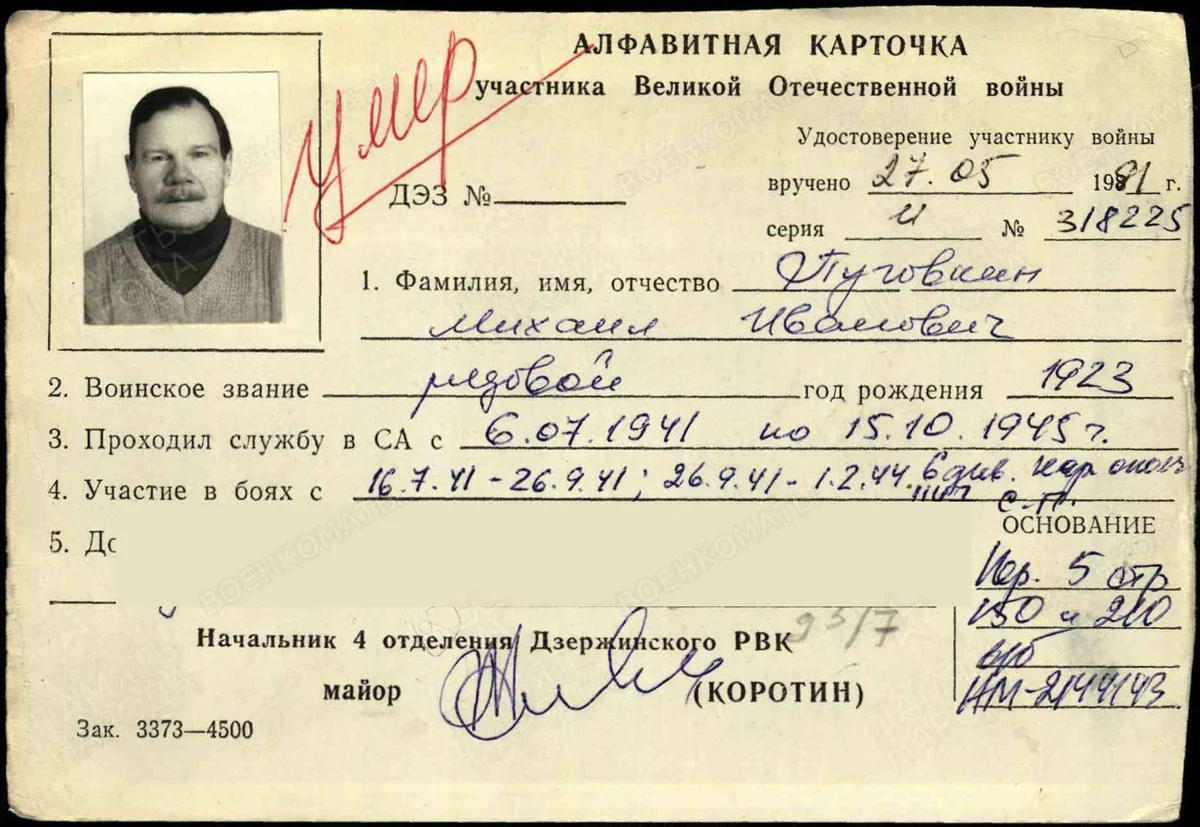 АЛФАВИТНАЯ КАРТОЧКА
участника Великой Отечественной войны
Умер
Удостоверение участнику войны
вручено 27.05 1981 г.
ДЭЗ №
серия И № 318225
1. Фамилия, имя, отчество Пуговкин
Михаил Иванович
2. Воинское звание рядовой год рождения 1923
3. Проходил службу в СА с 6.07.1941 по 15.10.1945 г.
4. Участие в боях с 16.7.41 - 26.9.41; 26.9.41 - 1.2.44. 6 див. нар ополч
с.п.
ОСНОВАНИЕ
5. До
5 стр
150 и 210
в/б
НМ-2144143
Начальник 4 отделения Дзержинского РВК 93/7
майор (КОРОТИН)
Зак. 3373—4500
ВОЕНКОМАТЫ